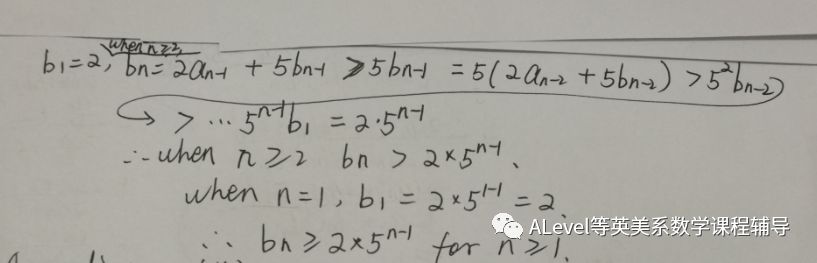 when n≥2,
b₁=2, bn=2aₙ₋₁ + 5bₙ₋₁ > 5bₙ₋₁ = 5(2aₙ₋₂ + 5bₙ₋₂) > 5²bₙ₋₂)
> ⋯ 5ⁿ⁻¹b₁ = 2·5ⁿ⁻¹
∴ when n≥2 bn > 2×5ⁿ⁻¹.
when n=1, b₁ = 2×5¹⁻¹ = 2.
∴ bn ≥ 2×5ⁿ⁻¹ for n≥1.
ALevel等英美系数学课程辅导